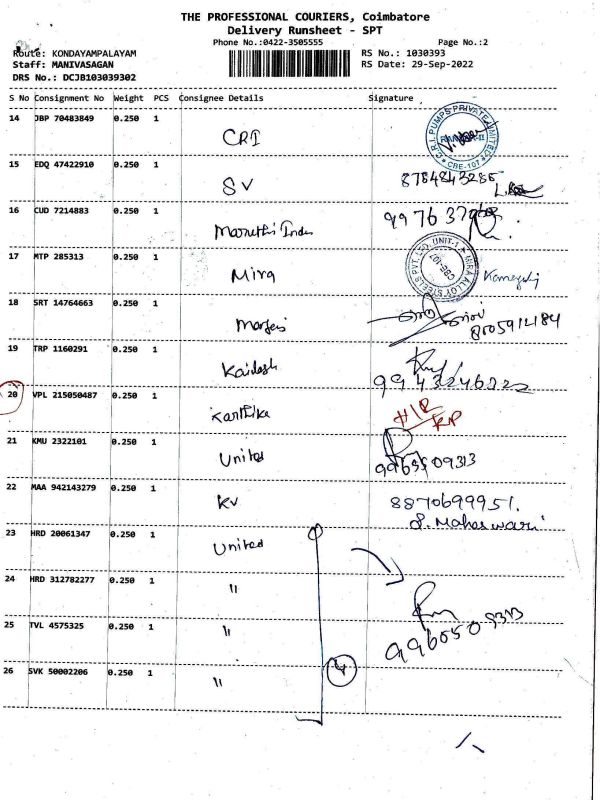 THE PROFESSIONAL COURIERS, Coimbatore
Delivery Runsheet - SPT
Phone No.:0422-3505555 Page No.:2
Route: KONDAYAMPALAYAM RS No.: 1030393
Staff: MANIVASAGAN RS Date: 29-Sep-2022
DRS No.: DCJB103039302
S No Consignment No Weight PCS Consignee Details Signature
14 JBP 70483849 0.250 1 CRI C.R.I. PUMPS PRIVATE LIMITED CBE-107
15 EDQ 47422910 0.250 1 SV 8754843285
16 CUD 7214883 0.250 1 Maruthi Indus
17 MTP 285313 0.250 1 Mira UNIT-1 CBE-107
18 SRT 14764663 0.250 1 8005912184
19 TRP 1160291 0.250 1 Kailash
9943246222
20 VPL 215050487 0.250 1 Karthika
21 KMU 2322101 0.250 1 United
9965509313
22 MAA 942143279 0.250 1 KV 8870699951.
S. Maheswari
23 HRD 20061347 0.250 1 United
24 HRD 312782277 0.250 1 "
25 TVL 4575325 0.250 1 " 9965509313
26 SVK 50002206 0.250 1 " 4